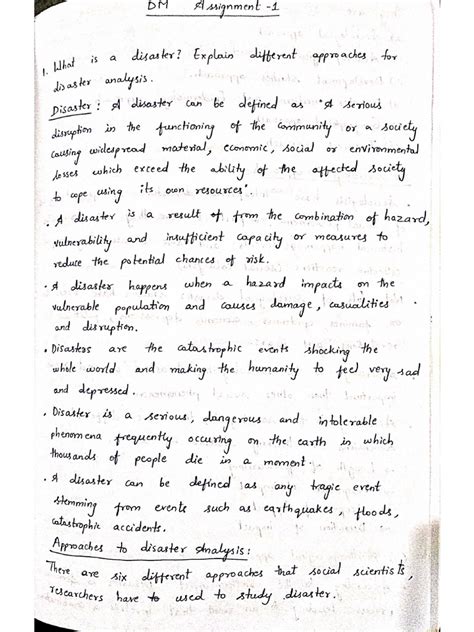 DM Assignment -1
1. What is a disaster? Explain different approaches for
disaster analysis.
Disaster : A disaster can be defined as "A serious
disruption in the functioning of the community or a society
causing widespread material, economic, social or environmental
losses which exceed the ability of the affected society
to cope using its own resources".
. A disaster is a result of from the combination of hazard,
vulnerability and insufficient capacity or measures to
reduce the potential chances of risk.
. A disaster happens when a hazard impacts on the
vulnerable population and causes damage, casualities
and disruption.
. Disasters are the catastrophic events shocking the
whole world and making the humanity to feel very sad
and depressed.
. Disaster is a serious, dangerous and intolerable
phenomena frequently occuring on the earth in which
thousands of people die in a moment.
. A disaster can be defined as any tragic event
stemming from events such as earthquakes, floods,
catastrophic accidents.
Approaches to disaster Analysis:
There are six different approaches that social scientists,
researchers have to used to study disaster.